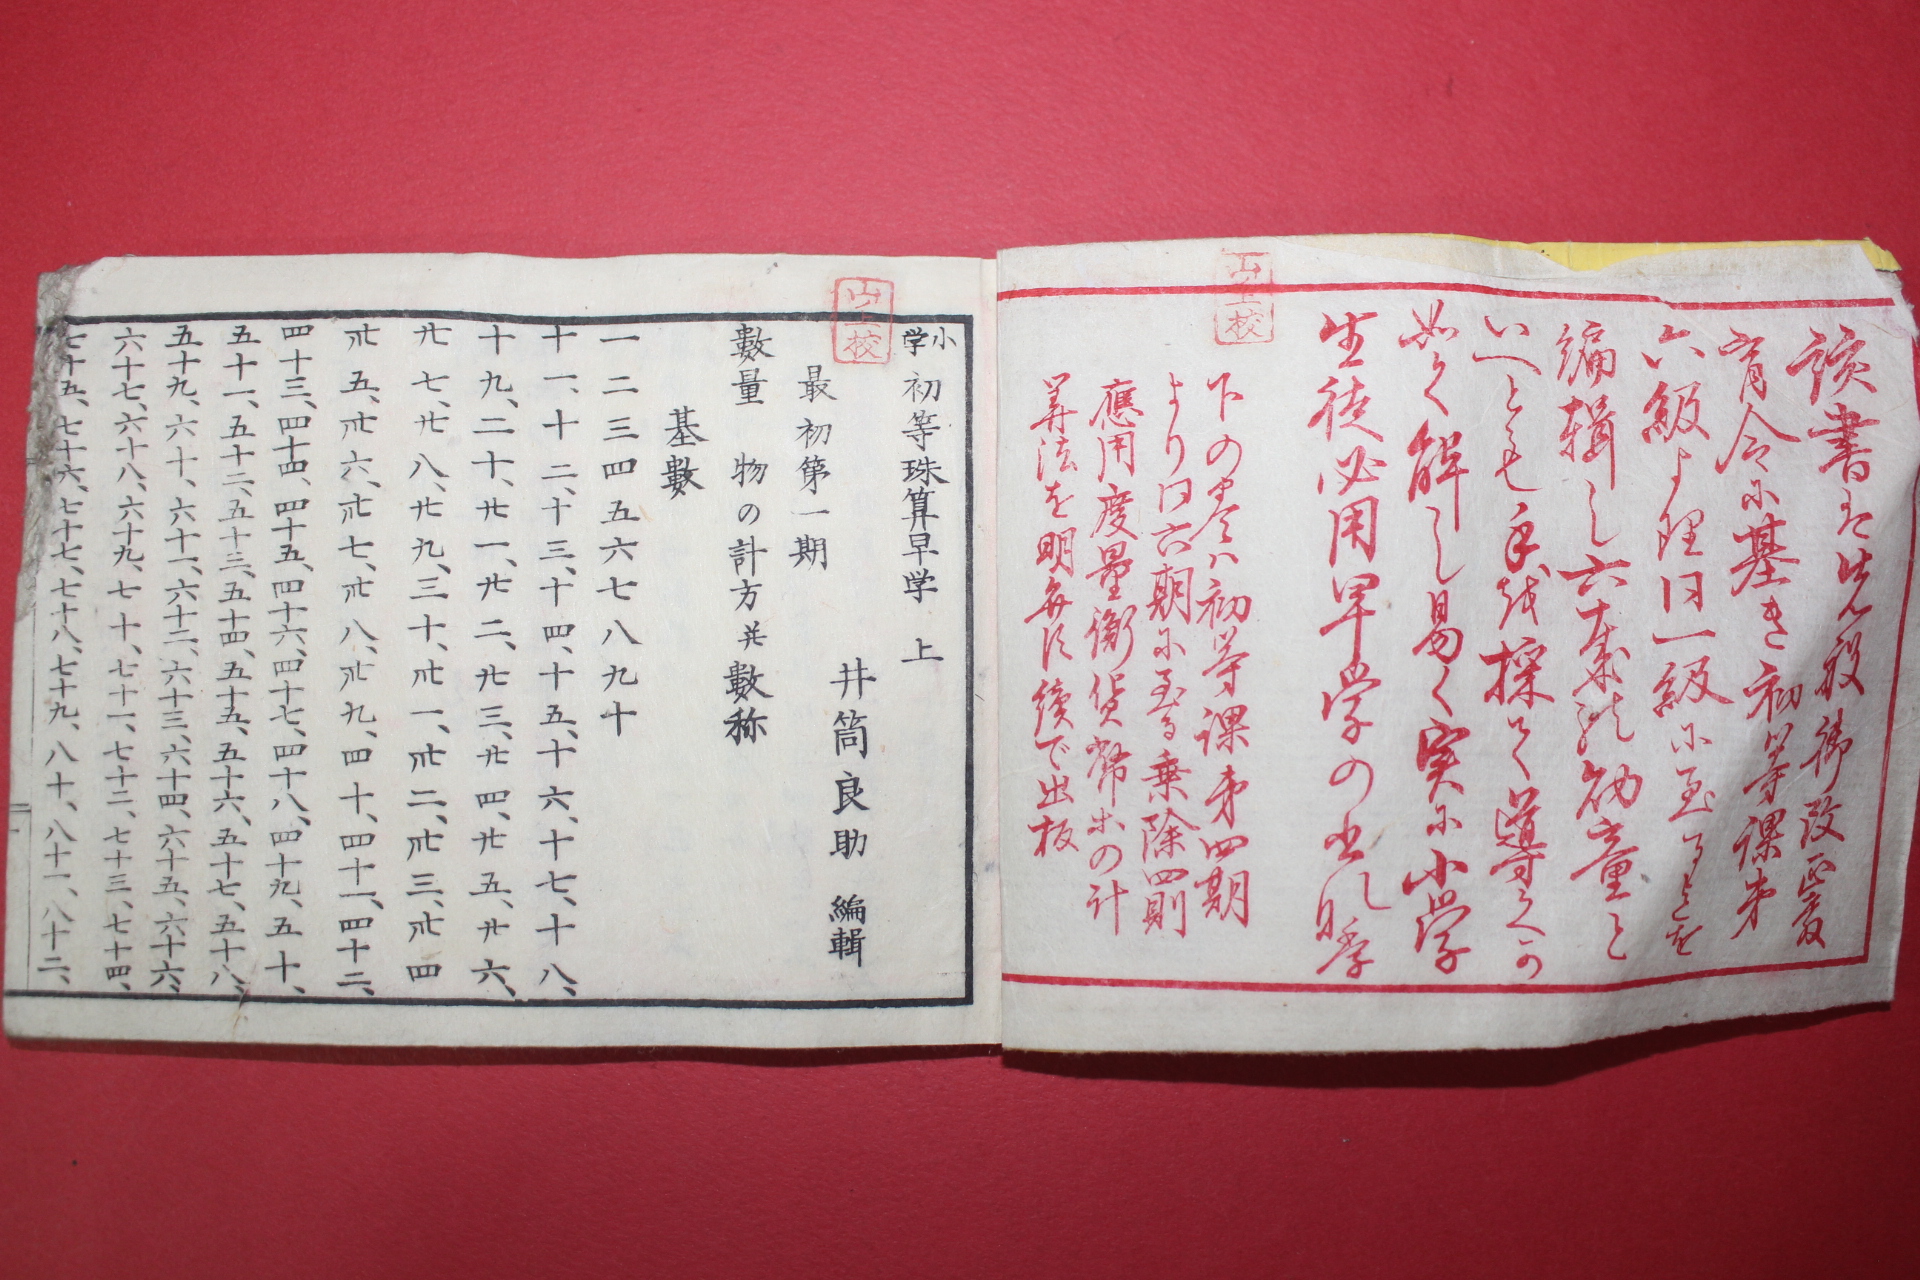 該書は先般御改正教
育令に基き初等課第
六級より同一級に至るまでを
編輯し六七歳の幼童と
いへとも手を採て導くか
如く解し易く実に小学
生徒必用早学の
下の巻ハ初等課第四期
より同六期に至る乗除四則
應用度量衡貨幣等の計
算法を明弁し續て出板
小学 初等珠算早学 上
井筒良助 編輯
最初第一期
數量 物の計方并數称
基數
一二三四五六七八九十
十一、十二、十三、十四、十五、十六、十七、十八、
十九、二十、廿一、廿二、廿三、廿四、廿五、廿六、
廿七、廿八、廿九、三十、卅一、卅二、卅三、卅四
卅五、卅六、卅七、卅八、卅九、四十、四十一、四十二、
四十三、四十四、四十五、四十六、四十七、四十八、四十九、五十、
五十一、五十二、五十三、五十四、五十五、五十六、五十七、五十八、
五十九、六十、六十一、六十二、六十三、六十四、六十五、六十六、
六十七、六十八、六十九、七十、七十一、七十二、七十三、七十四、
七十五、七十六、七十七、七十八、七十九、八十、八十一、八十二、